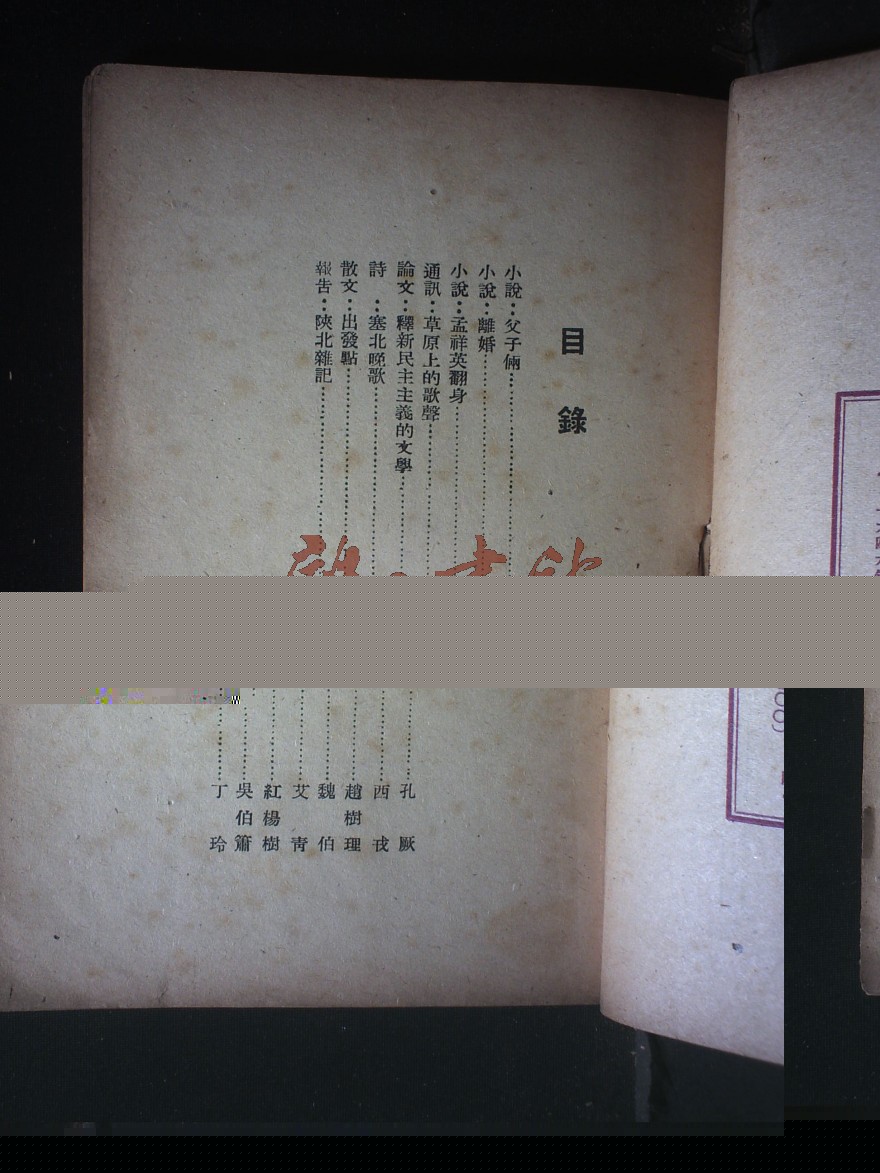 目錄
小說：父子倆……孔厥
小說：離婚……西戎
小說：孟祥英翻身……趙樹理
通訊：草原上的歌聲……魏伯
論文：釋新民主主義的文學……艾青
詩　：塞北晚歌……紅楊樹
散文：出發點……吳伯簫
報告：陝北雜記……丁玲